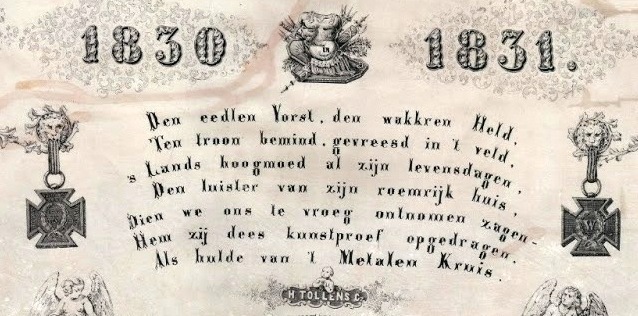 1830 1831.
Den eedlen Vorst, den wakkren Held,
Ten troon bemind, gevreesd in 't veld,
's Lands hoogmoed al zijn levensdagen,
Den luister van zijn roemrijk huis,
Dien we ons te vroeg ontnomen zagen–
Hem zij dees kunstproef opgedragen,
Als hulde van 't Metalen Kruis.
H TOLLENS C.